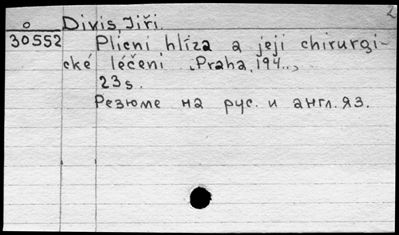 o Diviš Jiří.
30552 Plicni hlíza a její chirurgi-
cké léčeni, Praha, 194..,
23 s.
Резюме на рус. и англ. яз.